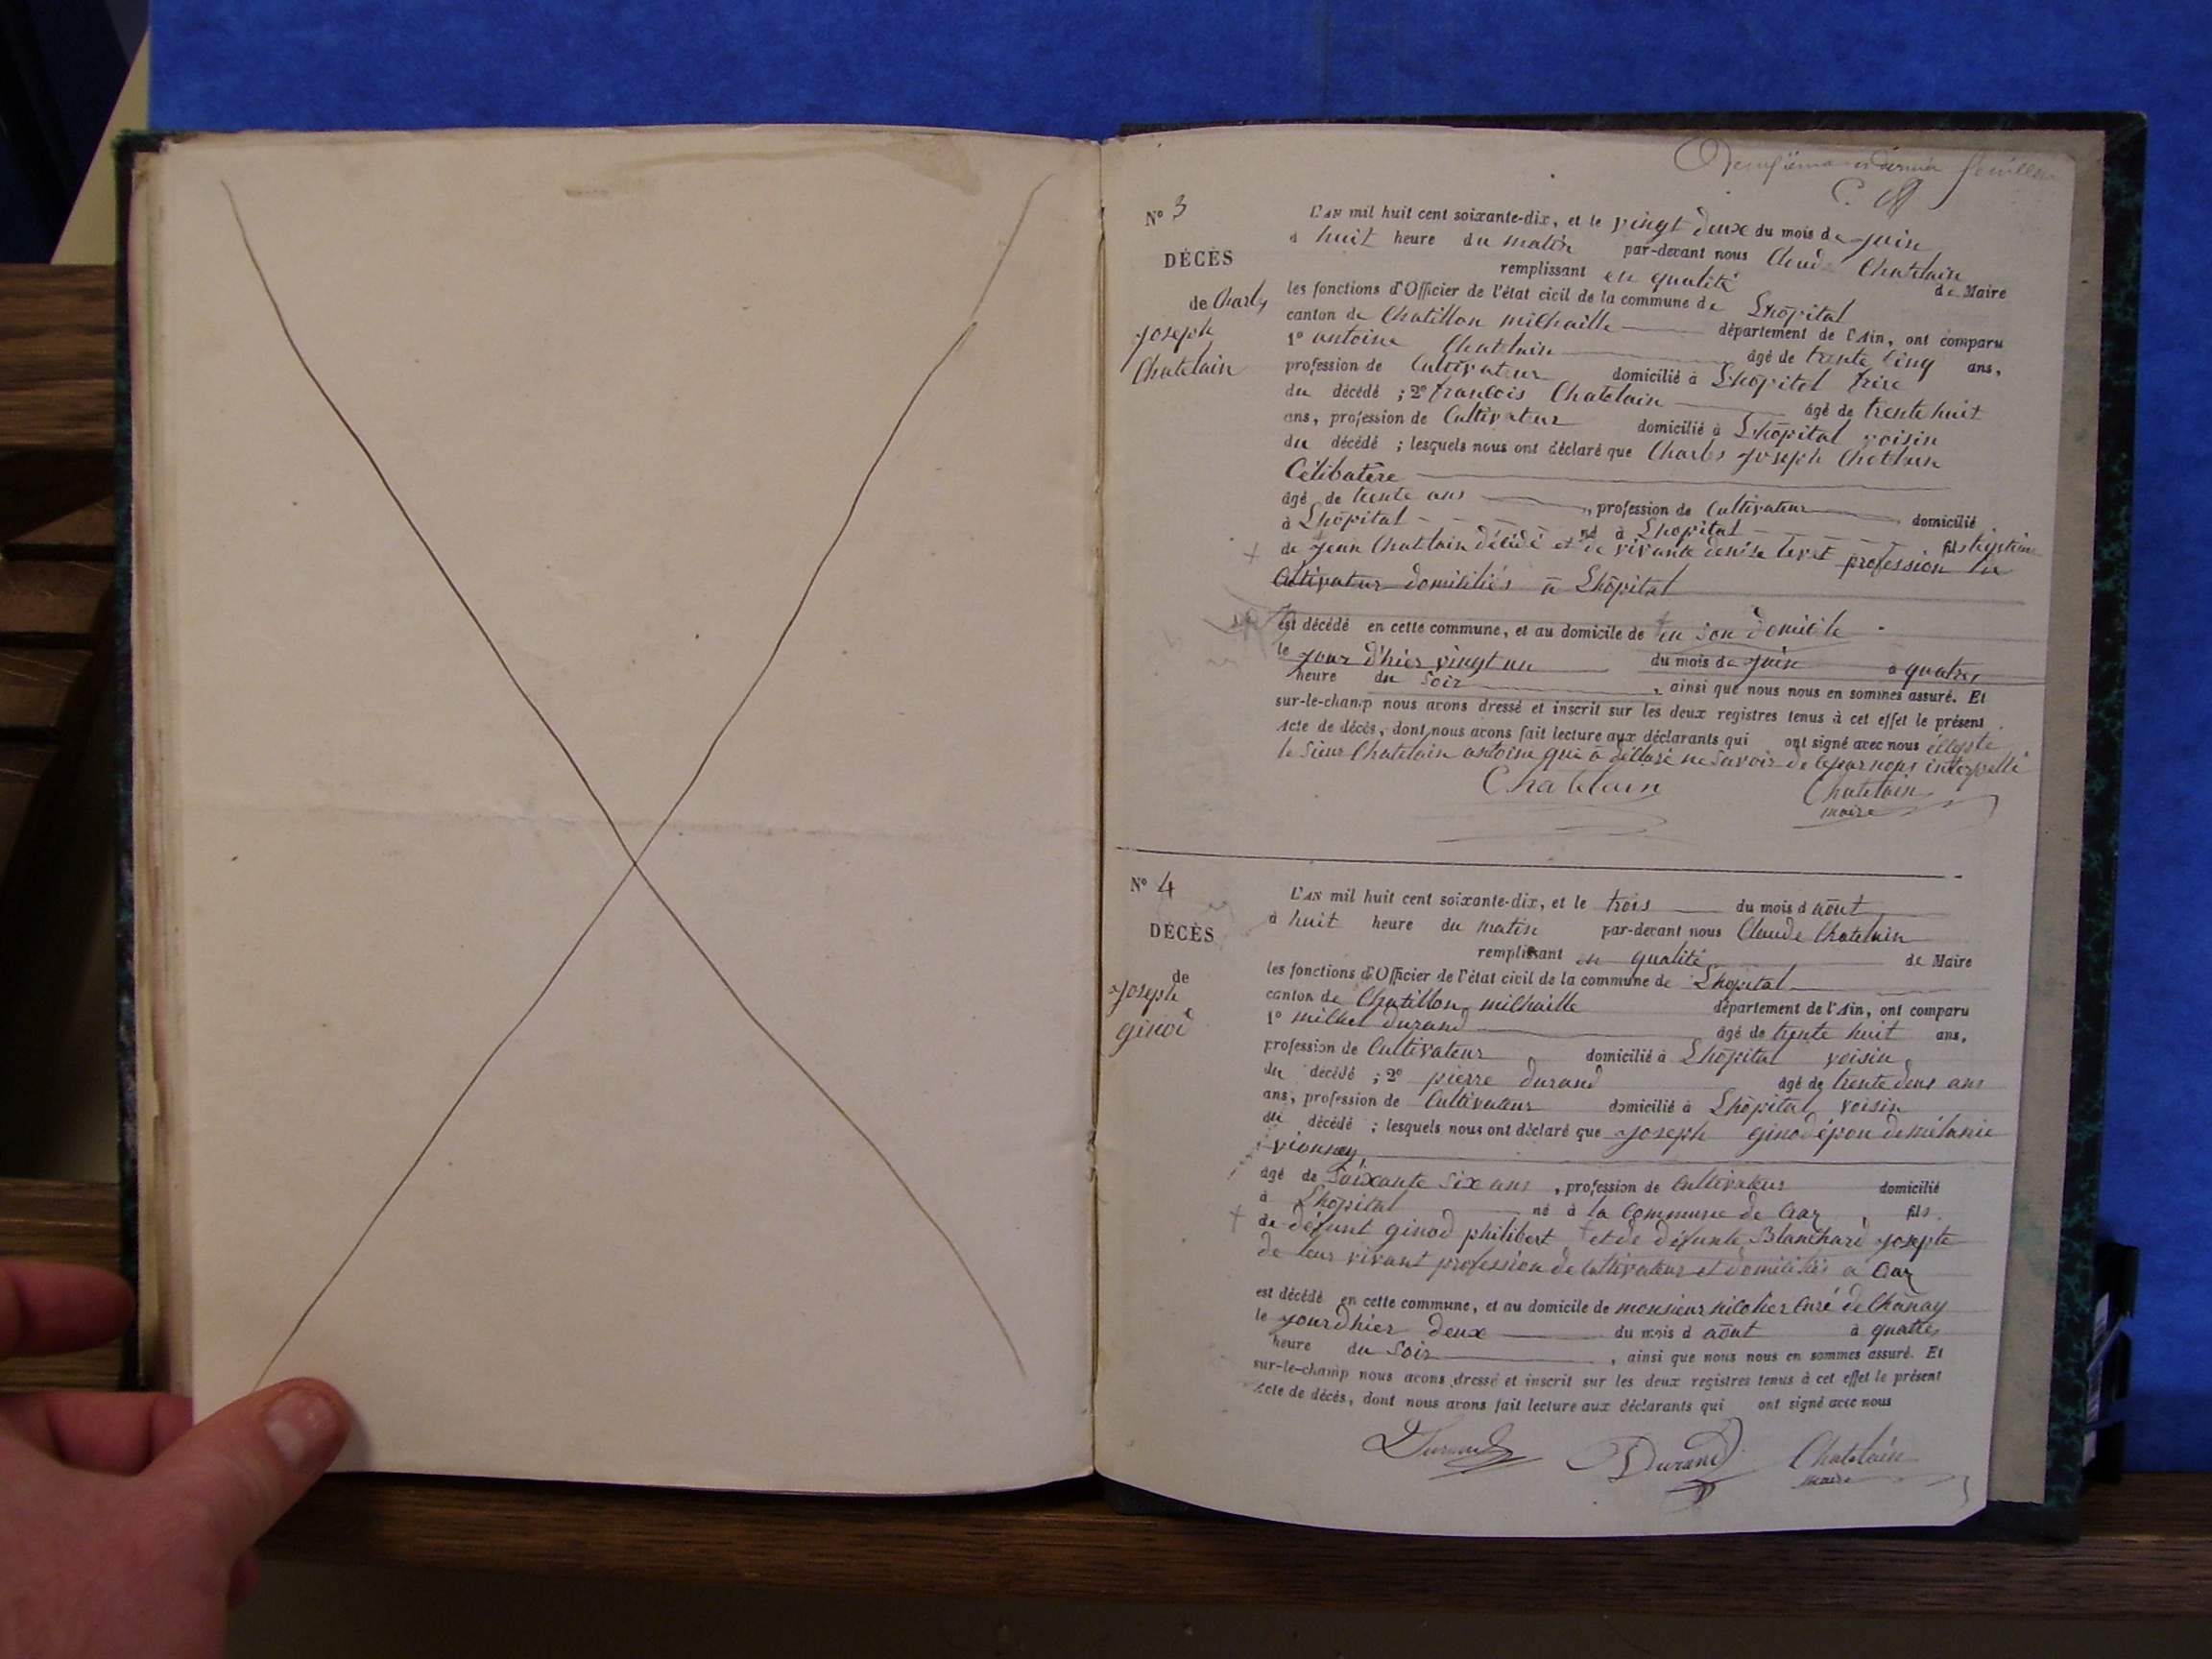 Deuxième et dernier feuillet
N° 3
DÉCÈS
de Charles
joseph
Chatelain
L'AN mil huit cent soixante-dix, et le vingt deux du mois de juin
à huit heure du matin par-devant nous Claude Chatelain
remplissant en qualité de Maire
les fonctions d'Officier de l'état civil de la commune de Lhôpital
canton de Chatillon michaille département de l'Ain, ont comparu
1° antoine Chatelain âgé de trente cinq ans,
profession de Cultivateur domicilié à Lhôpital frère
du décédé ; 2° francois Chatelain âgé de trente huit
ans, profession de Cultivateur domicilié à Lhôpital voisin
du décédé ; lesquels nous ont déclaré que Charles joseph Chatelain
Célibatère
âgé de trente ans , profession de Cultivateur domicilié
à Lhôpital né à Lhopital fils
de jean Chatelain décédé et de vivante denise profession de
Cultivateur domiciliés à Lhôpital
est décédé en cette commune, et au domicile de en son domicile
le jour d'hier vingt un du mois de juin à quatre
heure du soir , ainsi que nous nous en sommes assuré. Et
sur-le-champ nous avons dressé et inscrit sur les deux registres tenus à cet effet le présent
acte de décès, dont nous avons fait lecture aux déclarants qui ont signé avec nous
le sieur Chatelain antoine qui à déclaré ne savoir de par nous interpellé
Chatelain Chatelain
maire
N° 4
DÉCÈS
de
joseph
ginod
L'AN mil huit cent soixante-dix, et le trois du mois d août
à huit heure du matin par-devant nous Claude Chatelain
remplissant en qualité de Maire
les fonctions d'Officier de l'état civil de la commune de Lhopital
canton de Chatillon michaille département de l'Ain, ont comparu
1° michel durand âgé de trente huit ans,
profession de Cultivateur domicilié à Lhôpital voisin
du décédé ; 2° pierre durand âgé de trente deux ans
ans, profession de Cultivateur domicilié à Lhôpital voisin
du décédé ; lesquels nous ont déclaré que joseph ginod épou de mélanie
vionney
âgé de soixante six ans , profession de Cultivateur domicilié
à Lhôpital né à la commune de Craz , fils
de défunt ginod philibert et de défunte Blanchard josepte
de leur vivant profession de Cultivateur et domiciliés a Craz
est décédé en cette commune, et au domicile de monsieur nicolier Curé de Chanay
le jour dhier deux du mois d août à quatre
heure du soir , ainsi que nous nous en sommes assuré. Et
sur-le-champ nous avons dressé et inscrit sur les deux registres tenus à cet effet le présent
acte de décès, dont nous avons fait lecture aux déclarants qui ont signé avec nous
Durand Durand Chatelain
maire